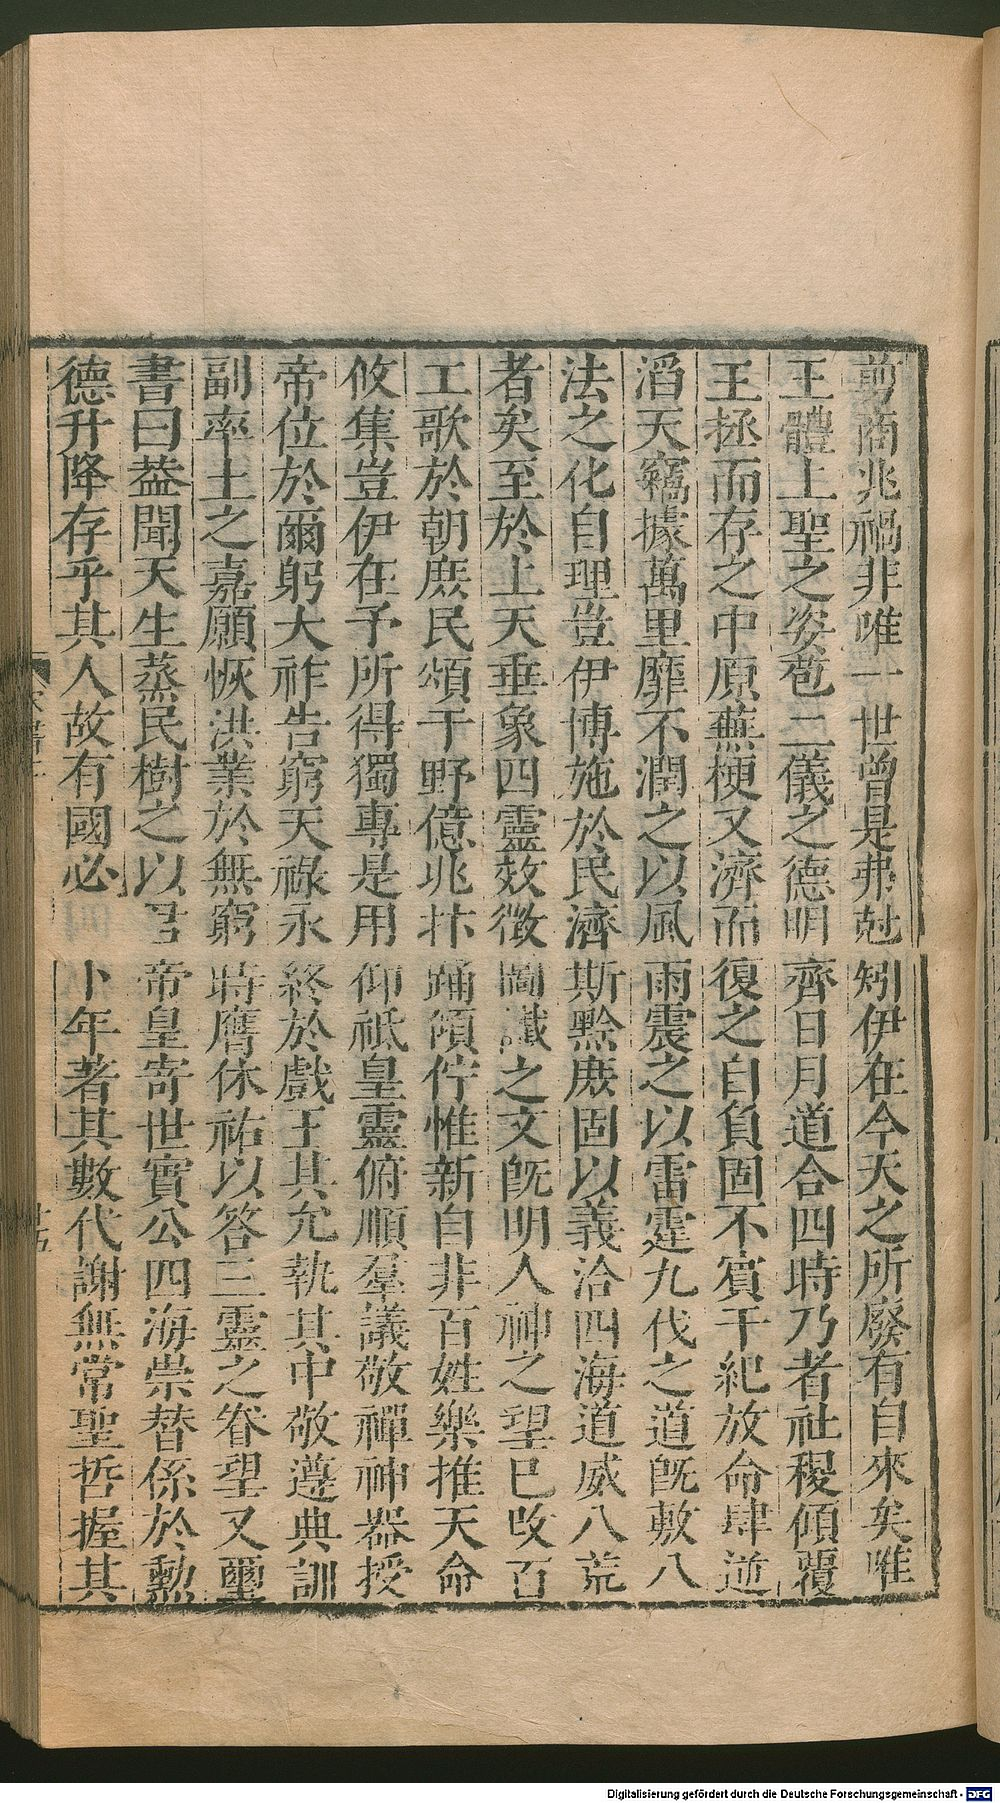 剪商兆禍非唯一世曾是弗剋矧伊在今天之所廢有自來矣唯
王體上聖之姿苞二儀之德明齊日月道合四時乃者社稷傾覆
王拯而存之中原蕪梗又濟而復之自負固不賓干紀放命肆逆
滔天竊據萬里靡不潤之以風雨震之以雷霆九伐之道旣敷八
法之化自理豈伊博施於民濟斯黔庶固以義洽四海道威八荒
者矣至於上天垂象四靈效徵圖讖之文旣明人神之望已改百
工歌於朝庶民頌于野億兆抃踊傾佇惟新自非百姓樂推天命
攸集豈伊在予所得獨專是用仰祗皇靈俯順羣議敬禪神器授
帝位於爾躬大祚告窮天祿永終於戲王其允執其中敬遵典訓
副率土之嘉願恢洪業於無窮時膺休祐以答三靈之眷望又璽
書曰葢聞天生蒸民樹之以君帝皇寄世實公四海崇替係於勲
德升降存乎其人故有國必卜年著其數代謝無常聖哲握其
Digitalisierung gefördert durch die Deutsche Forschungsgemeinschaft - DFG